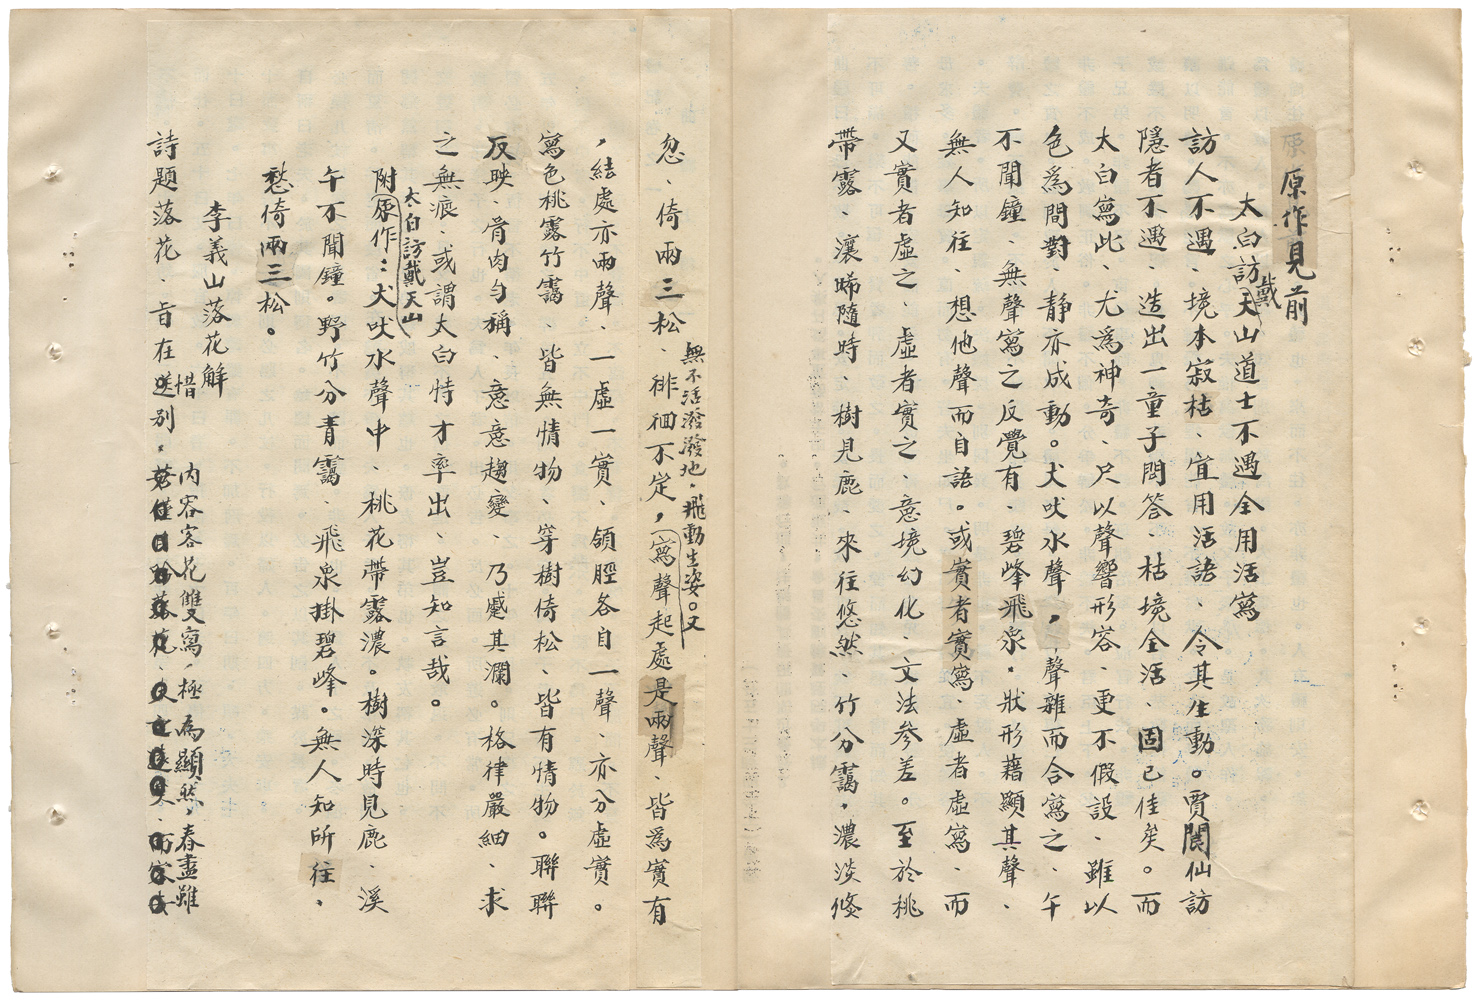 原作見前
太白訪戴天山道士不遇全用活寫
訪人不遇、境本寂枯、宜用活語、令其生動。賈閬仙訪
隱者不遇、造出一童子問答、枯境全活、固已佳矣。而
太白寫此、尤為神奇、尺以聲響形容、更不假設、雖以
色為間對、靜亦成動。犬吠水聲，聲雜而合寫之、午
不聞鐘、無聲寫之反覺有、碧峰飛泉．狀形藉顯其聲、
無人知往、想他聲而自語。或實者實寫、虛者虛寫、而
又實者虛之、虛者實之、意境幻化、文法參差。至於桃
帶露、瀼晞隨時、樹見鹿、來往悠然、竹分靄．濃淡倏
忽、倚兩三松、徘徊不定，無不活潑潑地．飛動生姿。又寫聲起處是兩聲、皆為實有
，結處亦兩聲、一虛一實、領脛各自一聲、亦分虛實。
寫色桃露竹靄、皆無情物、穿樹倚松、皆有情物。聯聯
反映、骨肉勻稱、意意趨變、乃蹙其瀾。格律嚴細、求
之無痕、或謂太白恃才率出、豈知言哉。
附太白訪戴天山原作：犬吠水聲中、桃花帶露濃。樹深時見鹿、溪
午不聞鐘。野竹分青靄、飛泉掛碧峰。無人知所往、
愁倚兩三松。
李義山落花解
詩題落花、旨在惜別．內容客花雙寫，極為顯然，春盡雖